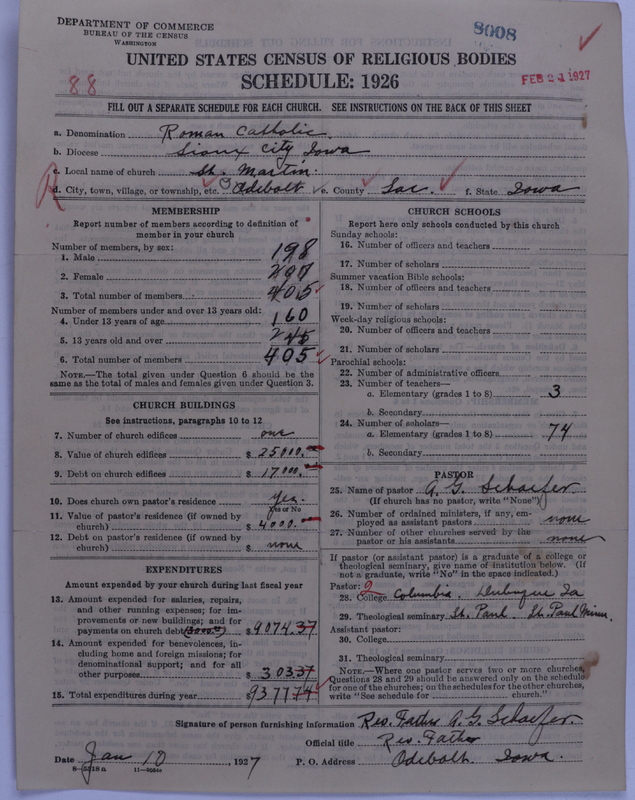 DEPARTMENT OF COMMERCE
BUREAU OF THE CENSUS
WASHINGTON
8008
UNITED STATES CENSUS OF RELIGIOUS BODIES
SCHEDULE: 1926
88
FEB 21 1927
FILL OUT A SEPARATE SCHEDULE FOR EACH CHURCH. SEE INSTRUCTIONS ON THE BACK OF THIS SHEET
a. Denomination Roman Catholic
b. Diocese Sioux City Iowa
c. Local name of church St. Martin
d. City, town, village, or township, etc. Odebolt e. County Sac. f. State Iowa
MEMBERSHIP
Report number of members according to definition of
member in your church
Number of members, by sex:
1. Male 198
2. Female 207
3. Total number of members 405
Number of members under and over 13 years old:
4. Under 13 years of age 160
5. 13 years old and over 245
6. Total number of members 405
NOTE.—The total given under Question 6 should be
same as the total of males and females given under Question 3.
CHURCH BUILDINGS
See instructions, paragraphs 10 to 12
7. Number of church edifices one
8. Value of church edifices $ 25000.
9. Debt on church edifices $ 17000.
10. Does church own pastor's residence yes.
Yes or No
11. Value of pastor's residence (if owned by
church) $ 4000.
12. Debt on pastor's residence (if owned by
church) $ none
EXPENDITURES
Amount expended by your church during last fiscal year
13. Amount expended for salaries, repairs,
and other running expenses; for im-
provements or new buildings; and for
payments on church debt $ 9074.37
14. Amount expended for benevolences, in-
cluding home and foreign missions; for
denominational support; and for all
other purposes $ 303.37
15. Total expenditures during year $ 9377.74
CHURCH SCHOOLS
Report here only schools conducted by this church
Sunday schools:
16. Number of officers and teachers
17. Number of scholars
Summer vacation Bible schools:
18. Number of officers and teachers
19. Number of scholars
Week-day religious schools:
20. Number of officers and teachers
21. Number of scholars
Parochial schools:
22. Number of administrative officers
23. Number of teachers—
a. Elementary (grades 1 to 8) 3
b. Secondary
24. Number of scholars—
a. Elementary (grades 1 to 8) 74
b. Secondary
PASTOR
25. Name of pastor A. G. Schaefer
(If church has no pastor, write "None")
26. Number of ordained ministers, if any, em-
ployed as assistant pastors none
27. Number of other churches served by the
pastor or his assistants none
If pastor (or assistant pastor) is a graduate of a college or
theological seminary, give name of institution below. (If
not a graduate, write "No" in the space indicated.)
Pastor: 2
28. College Columbia. Dubuque Ia
29. Theological seminary St. Paul. St. Paul Minn.
Assistant pastor:
30. College
31. Theological seminary
NOTE.—Where one pastor serves two or more churches,
Questions 28 and 29 should be answered only on the schedule
for one of the churches; on the schedules for the other churches,
write "See schedule for church."
Signature of person furnishing information Rev. Father A. G. Schaefer.
Official title Rev. Father
Date Jan 10, 1927 P. O. Address Odebolt Iowa.
8—5218a 11—9084